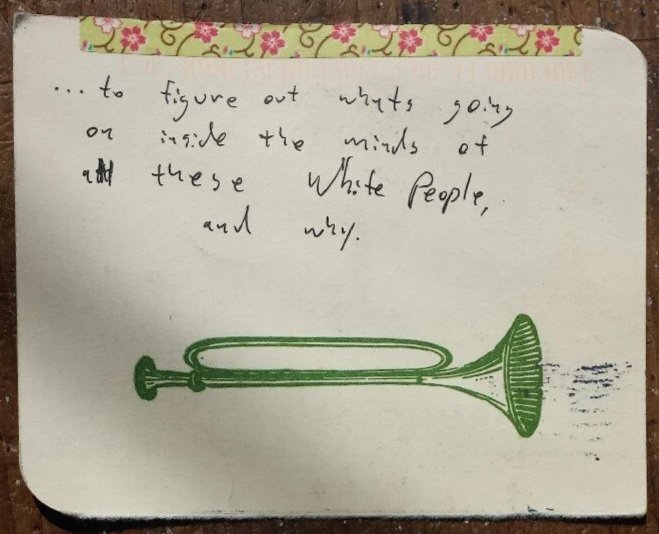 ... to figure out whats going
on inside the minds of
all these White People,
and why.